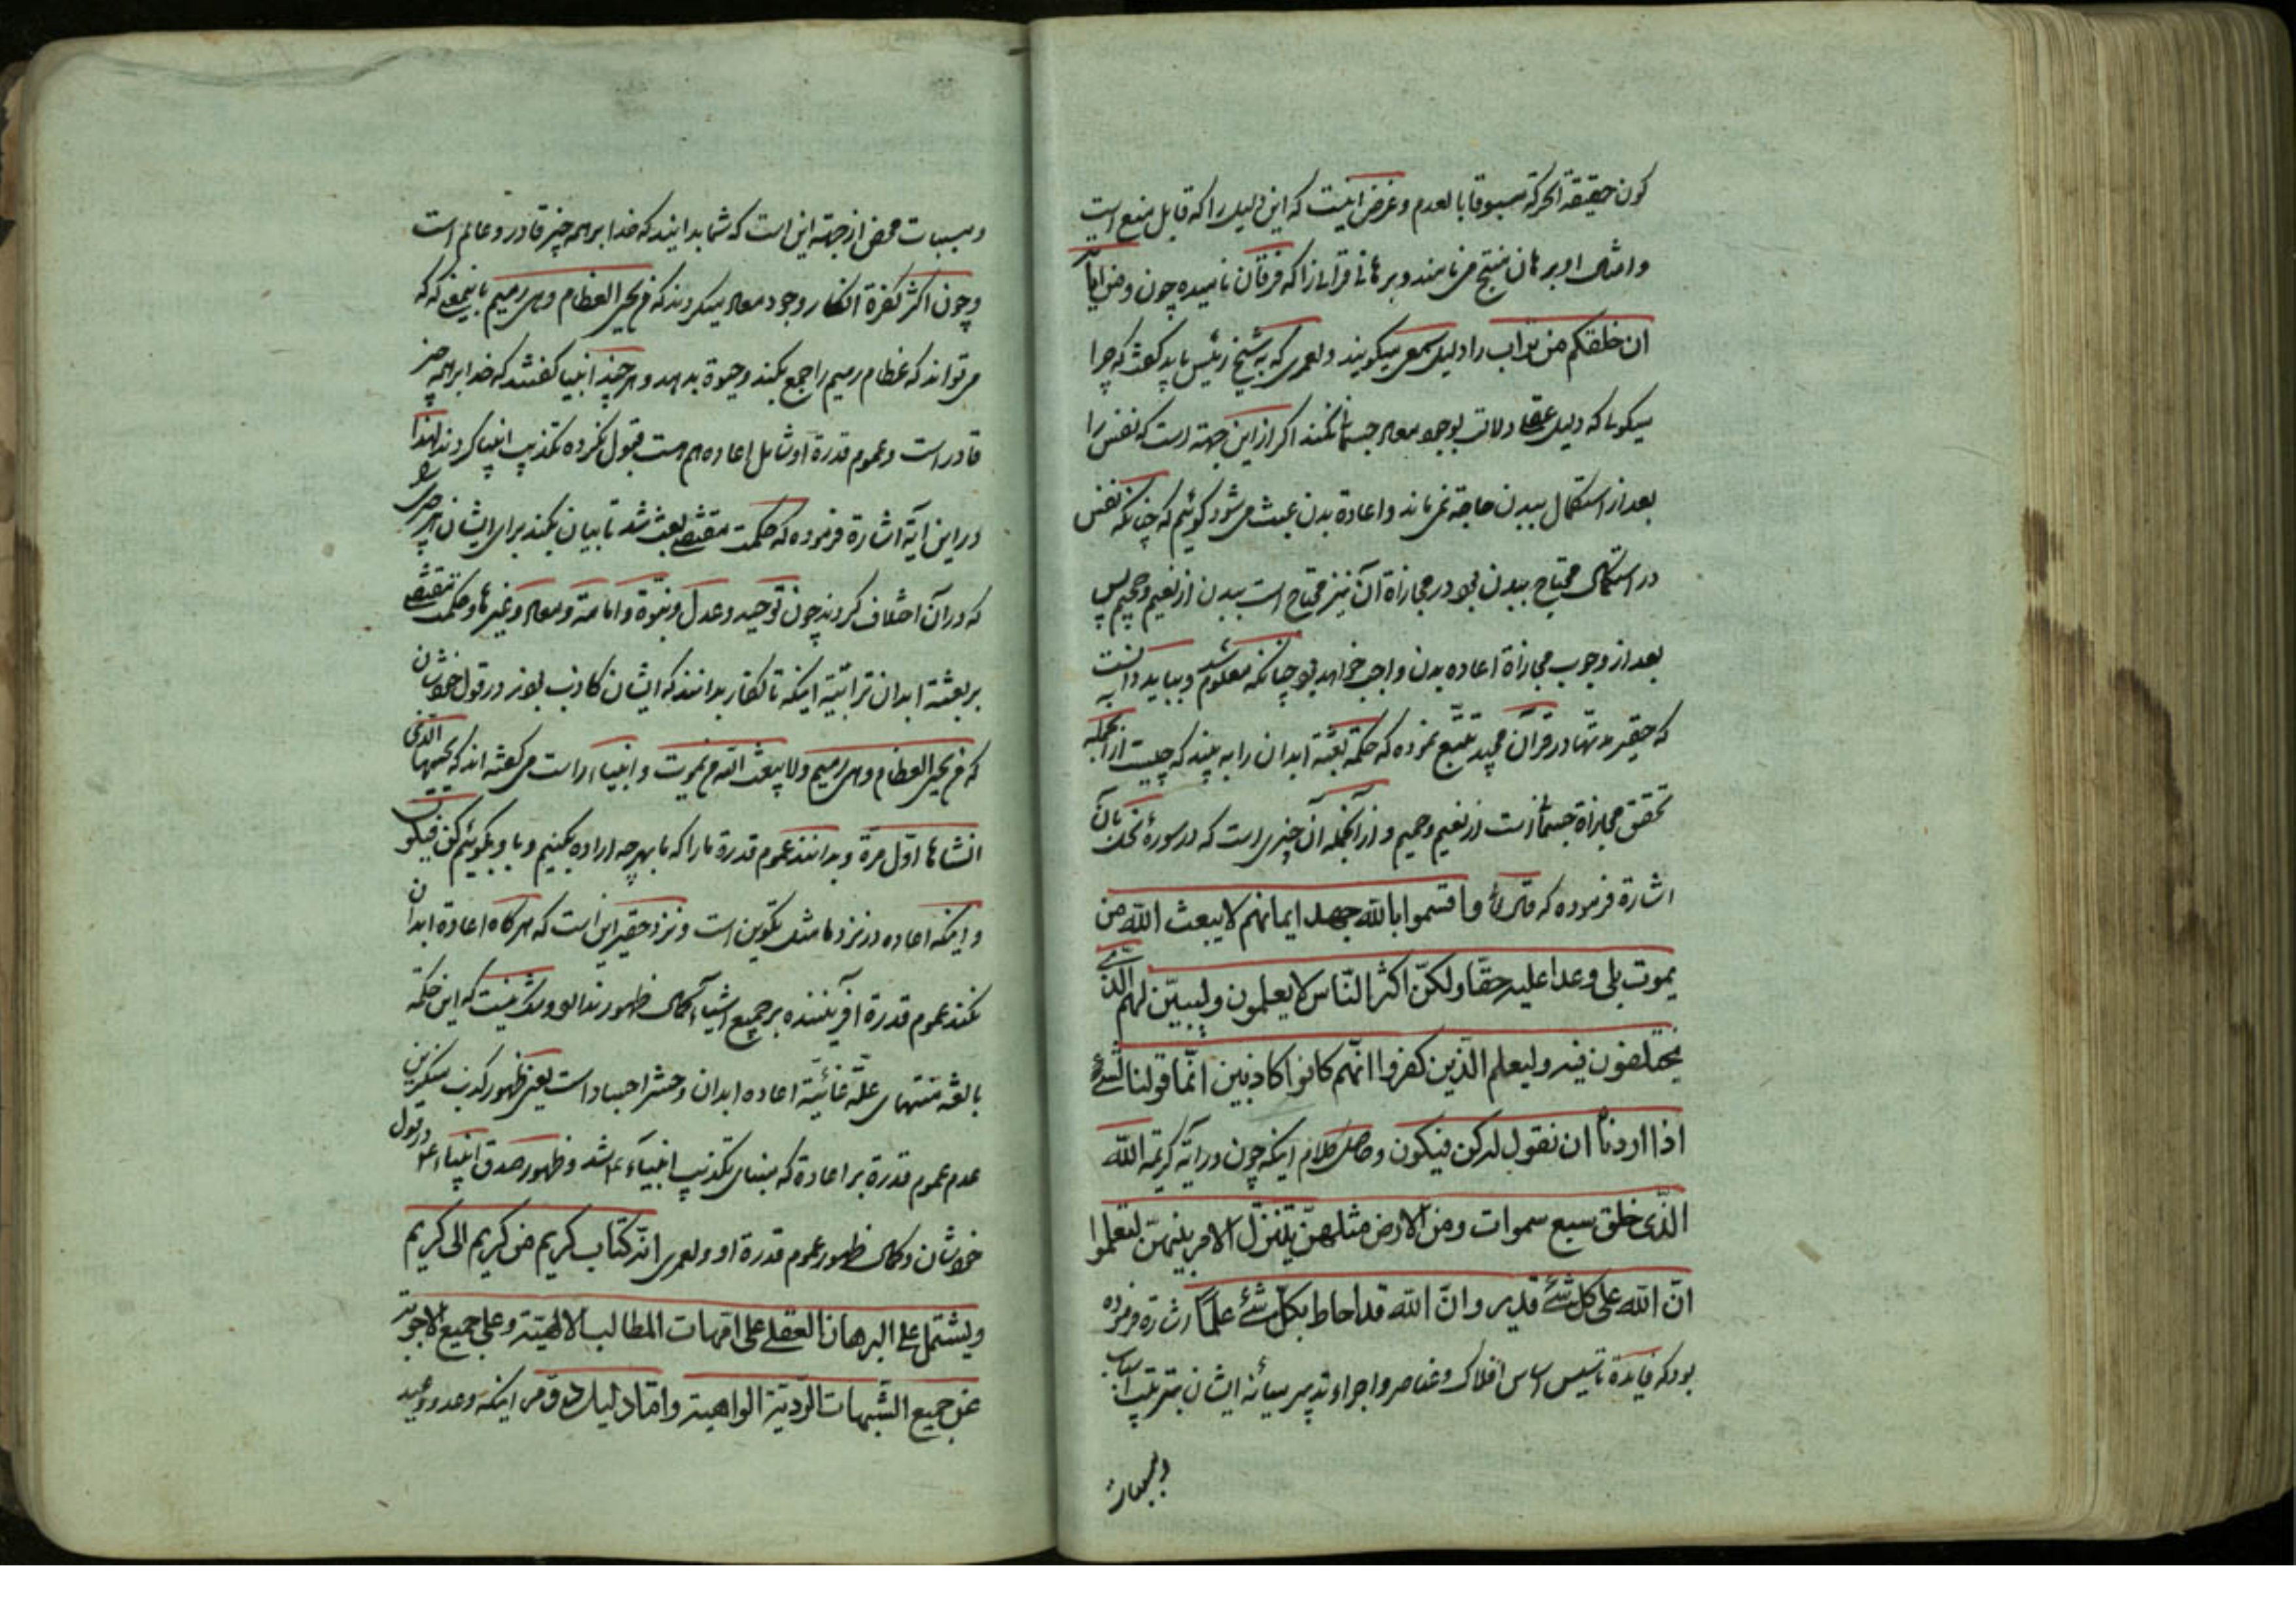 کون حقیقة الحرکة مسبوقا بالعدم و غرض اینست که این دلیل را که قابل منع است
و امثال او برهان منتج می‌نامند و برهانی قرانی را که فرقان نامیده چون و من آیاته
ان خلقکم من تراب را دلیل سمعی میکویند و لعمری که به شیخ رئیس باید کفت که چرا
میکوئی که دلیل عقلی دلالت بوجود معاد جسمانی نکند اکر از این جهة است که نفس را
بعد از استکمال ببدن حاجة نمی‌ماند و اعادة بدن عبث می‌شود کوئیم که چنانکه نفس
در استکمال محتاج ببدن بود در مجازاة آن نیز محتاج است ببدن از نعیم و جحیم پس
بعد از وجوب مجازاة اعاده بدن واجب خواهد بود چنانکه معلوم شد و بباید دانست
که حقیر مدتها در قرآن مجید تتبّع نموده که حکمة بعثة ابدان را به بیند که چیست از آنجمله
تحقق مجازاة جسمانیست از نعیم و جحیم و از آنجمله آن چیزی است که در سورهٔ نحل بآن
اشارة فرموده که قال و اقسموا بالله جهد ایمانهم لا یبعث الله من
یموت بلی وعدا علیه حقّا ولکنّ اکثر النّاس لا یعلمون و لیبیّن لهم الّذی
یختلفون فیه ولیعلم الّذین کفروا انّهم کانوا کاذبین انّما قولنا لشئ
اذا اردناه ان نقول له کن فیکون و حاصل کلام اینکه چون در آیه کریمه الله
الّذی خلق سبع سموات ومن الارض مثلهنّ یتنزّل الامر بینهنّ لتعلموا
انّ الله علی کل شئ قدیر و انّ الله قد احاط بکلّ شئ علما اشارة فرموده
بود که فایدة تاسیس اساس افلاک و عناصر و اجراء تدبیر میانه ایشان بترتیب اسباب
و مسببات
و مسببات محض از جهة این است که شما بدانید که خدا بر همه چیز قادر و عالم است
و چون اکثر کفرة انکار وجود معاد میکردند که من یحیی العظام و هی رمیم باینمعنی که که
می‌تواند که عظام رمیم را جمع بکند و حیوة بدهد و هر چند انبیا کفتند که خدا بر همه چیز
قادر است و عموم قدرة او شامل اعاده هم هست قبول نکرده تکذیب انبیا کردند لهذا
در این آیة اشارة فرموده که حکمت مقتضی بعث شد تا بیان بکند برای ایشان هر چیزی را
که در آن اختلاف کردند چون توحید و عدل و نبوّة و امامة و معاد و غیرها و حکمت مقتضی
بر بعثة ابدان ترابیّة اینکه تا کفار بدانند که ایشان کاذب بودند در قول خودشان
که من یحیی العظام و هی رمیم و لا یبعث الله من یموت و انبیاء راست می‌کفته‌اند که یحییها الّذی
انشاها اوّل مرّة و بدانند عموم قدرة ما را که ما بهر چه اراده بکنیم و باو بکوئیم کن فیکون
و اینکه اعاده در نزد ما مثل تکوین است و نزد حقیر این است که هرکاه اعادة ابدان
نکند عموم قدرة آفریننده بر جمیع اشیاء کمال ظهور ندارد و شک نیست که این حکمة
بالغه منتهای علّة غائیّة اعاده ابدان و حشر اجساد است یعنی ظهور کذب منکرین
عدم عموم قدرة بر اعادة که مبنای تکذیب انبیاء باشد و ظهور صدق انبیاء در قول
خودشان و کمال ظهور عموم قدرة او و لعمری انّه کتاب کریم من کریم الی کریم
و یشتمل علی البرهان العقلی علی امّهات المطالب الالهیّة و علی جمیع الاجوبة
عن جمیع الشّبهات الرّدیّة الواهیة و امّا دلیل ذوقی اینکه وعد و وعید